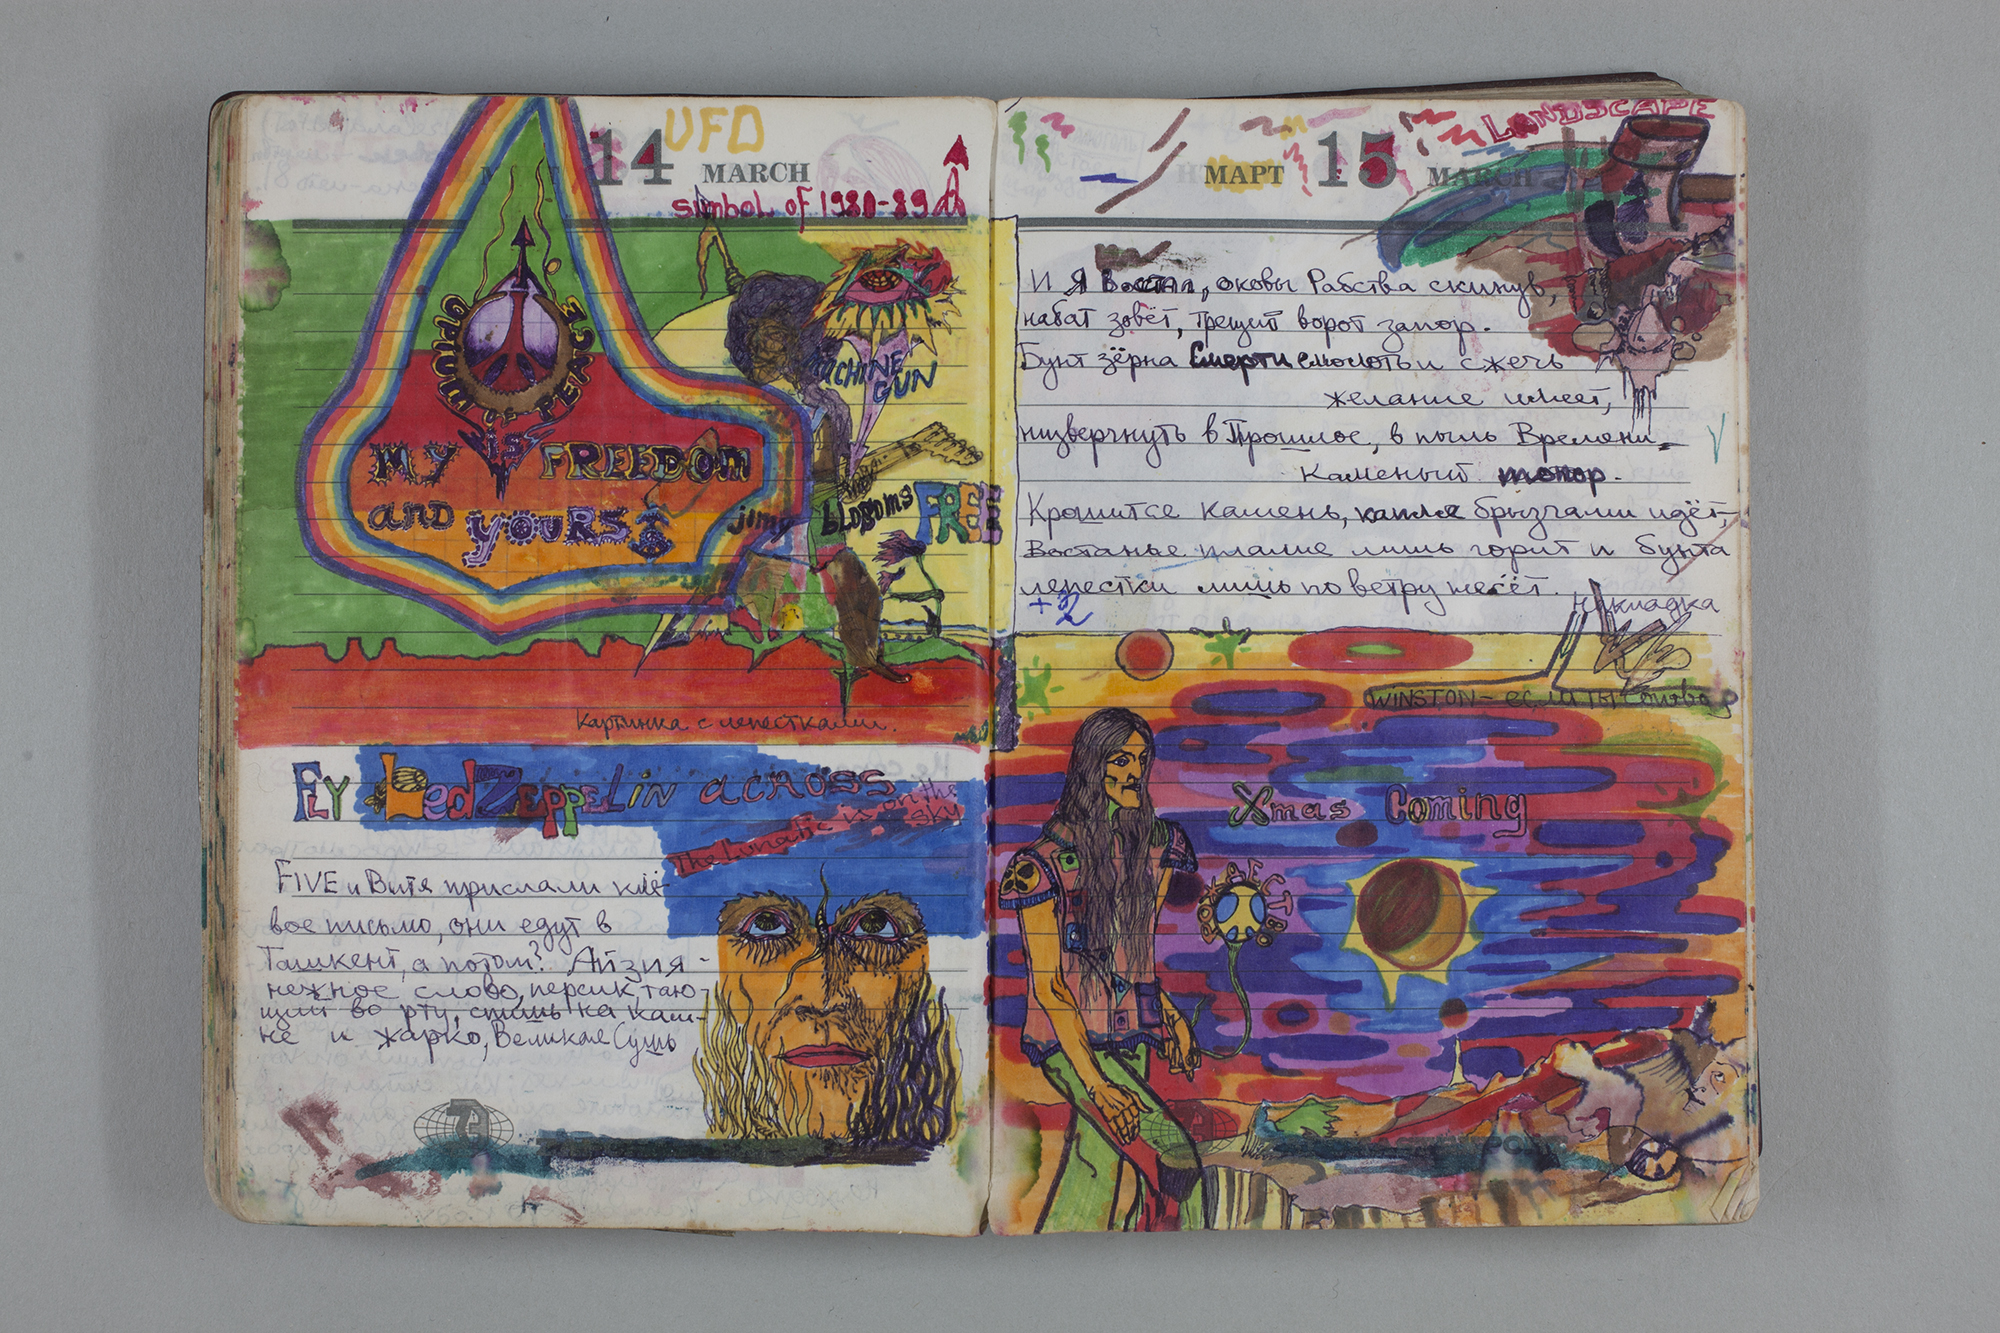 14
UFO
MARCH
simbol of 1980-89
OPIUM OF PEACE
MY IS FREEDOM
and YOURS
MACHINE
GUN
jimy
blossoms FREE
Картинка с лепестками.
FLY Led ZEPPELIN ACROSS
The Lunatic is on the
sky
FIVE и Витя прислали клё-
вое письмо, они едут в
Ташкент, а потом? Айзия -
нежное слово, персик, таю-
щий во рту, спишь на кам-
не и жарко, Великая Сушь
LANDSCAPE
МАРТ 15 MARCH
И Я Востал, оковы Рабства скинув,
набат зовёт, трещит ворот запор.
Бунт зёрна Смерти смолоть и сжечь
желание имеет,
низвергнуть в Прошлое, в пыль Времени
каменый топор.
Крошится камень, капля брызгами идёт,
Востанье пламя лишь горит и бунта
лепестки лишь по ветру несёт.
+2
накладка
WINSTON - если ты
Xmas Coming
РОЖДЕСТВО